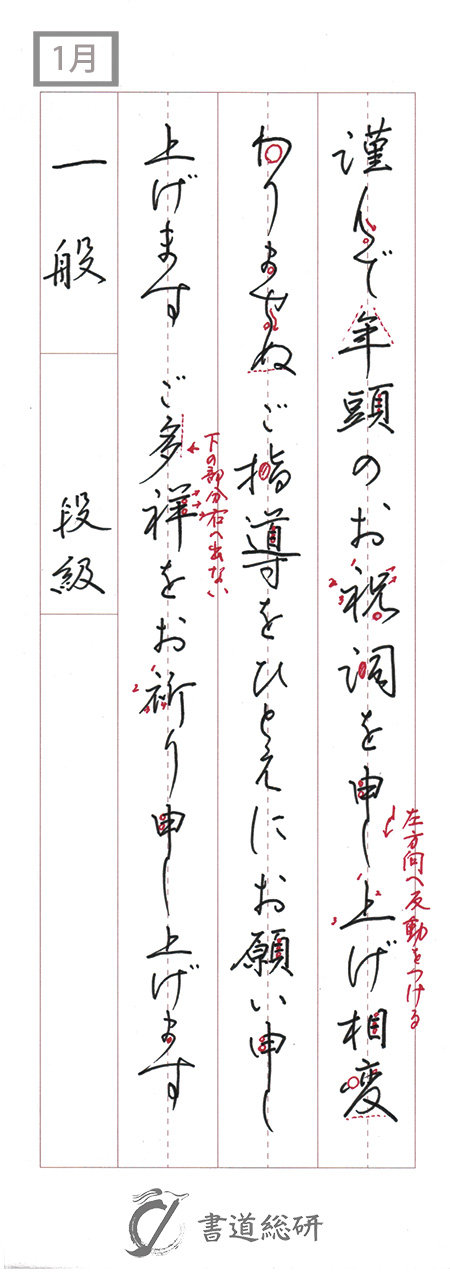 1月
謹んで年頭のお祝詞を申し上げ相変
わりませぬご指導をひとえにお願い申し
上げます ご多祥をお祈り申し上げます
一般
段級
左方向へ反動をつける
下の部分右へ出ない
書道総研